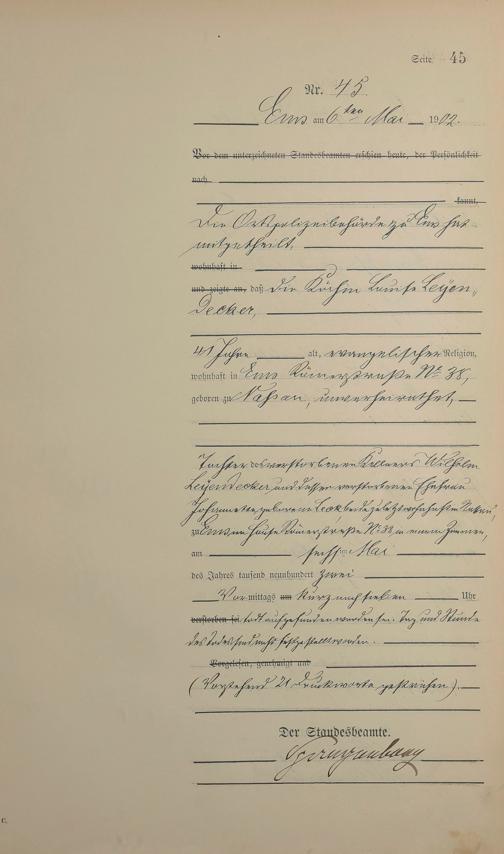 Seite 45
Nr. 45.
Ems am 6ten Mai 1902.
Vor dem unterzeichneten Standesbeamten erschien heute, der Persönlichkeit
nach
kannt,
Die Ortspolizeibehörde zu Ems hat
mitgetheilt,
wohnhaft in
und zeigte an, daß die Köchin Louise Leyen-
decker,
41 Jahre alt, evangelischer Religion,
wohnhaft in Ems Römerstraße No 38,
geboren zu Nassau, unverheirathet,
Tochter des verstorbenen Kellners Wilhelm
Leyendecker und dessen verstorbenen Ehefrau
Johannette geborene beide zuletzt wohnhaft in Nassau,
zu Ems im Hause Römerstraße No 38, in einem Zimmer,
am sechsten Mai
des Jahres tausend neunhundert zwei
Vormittags um kurz nach sieben Uhr
verstorben sei todt aufgefunden worden sei. Tag und Stunde
des Todes sind nicht festgestellt worden.
Vorgelesen, genehmigt und
(Vorstehend 21 Druckworte gestrichen).
Der Standesbeamte.
C.